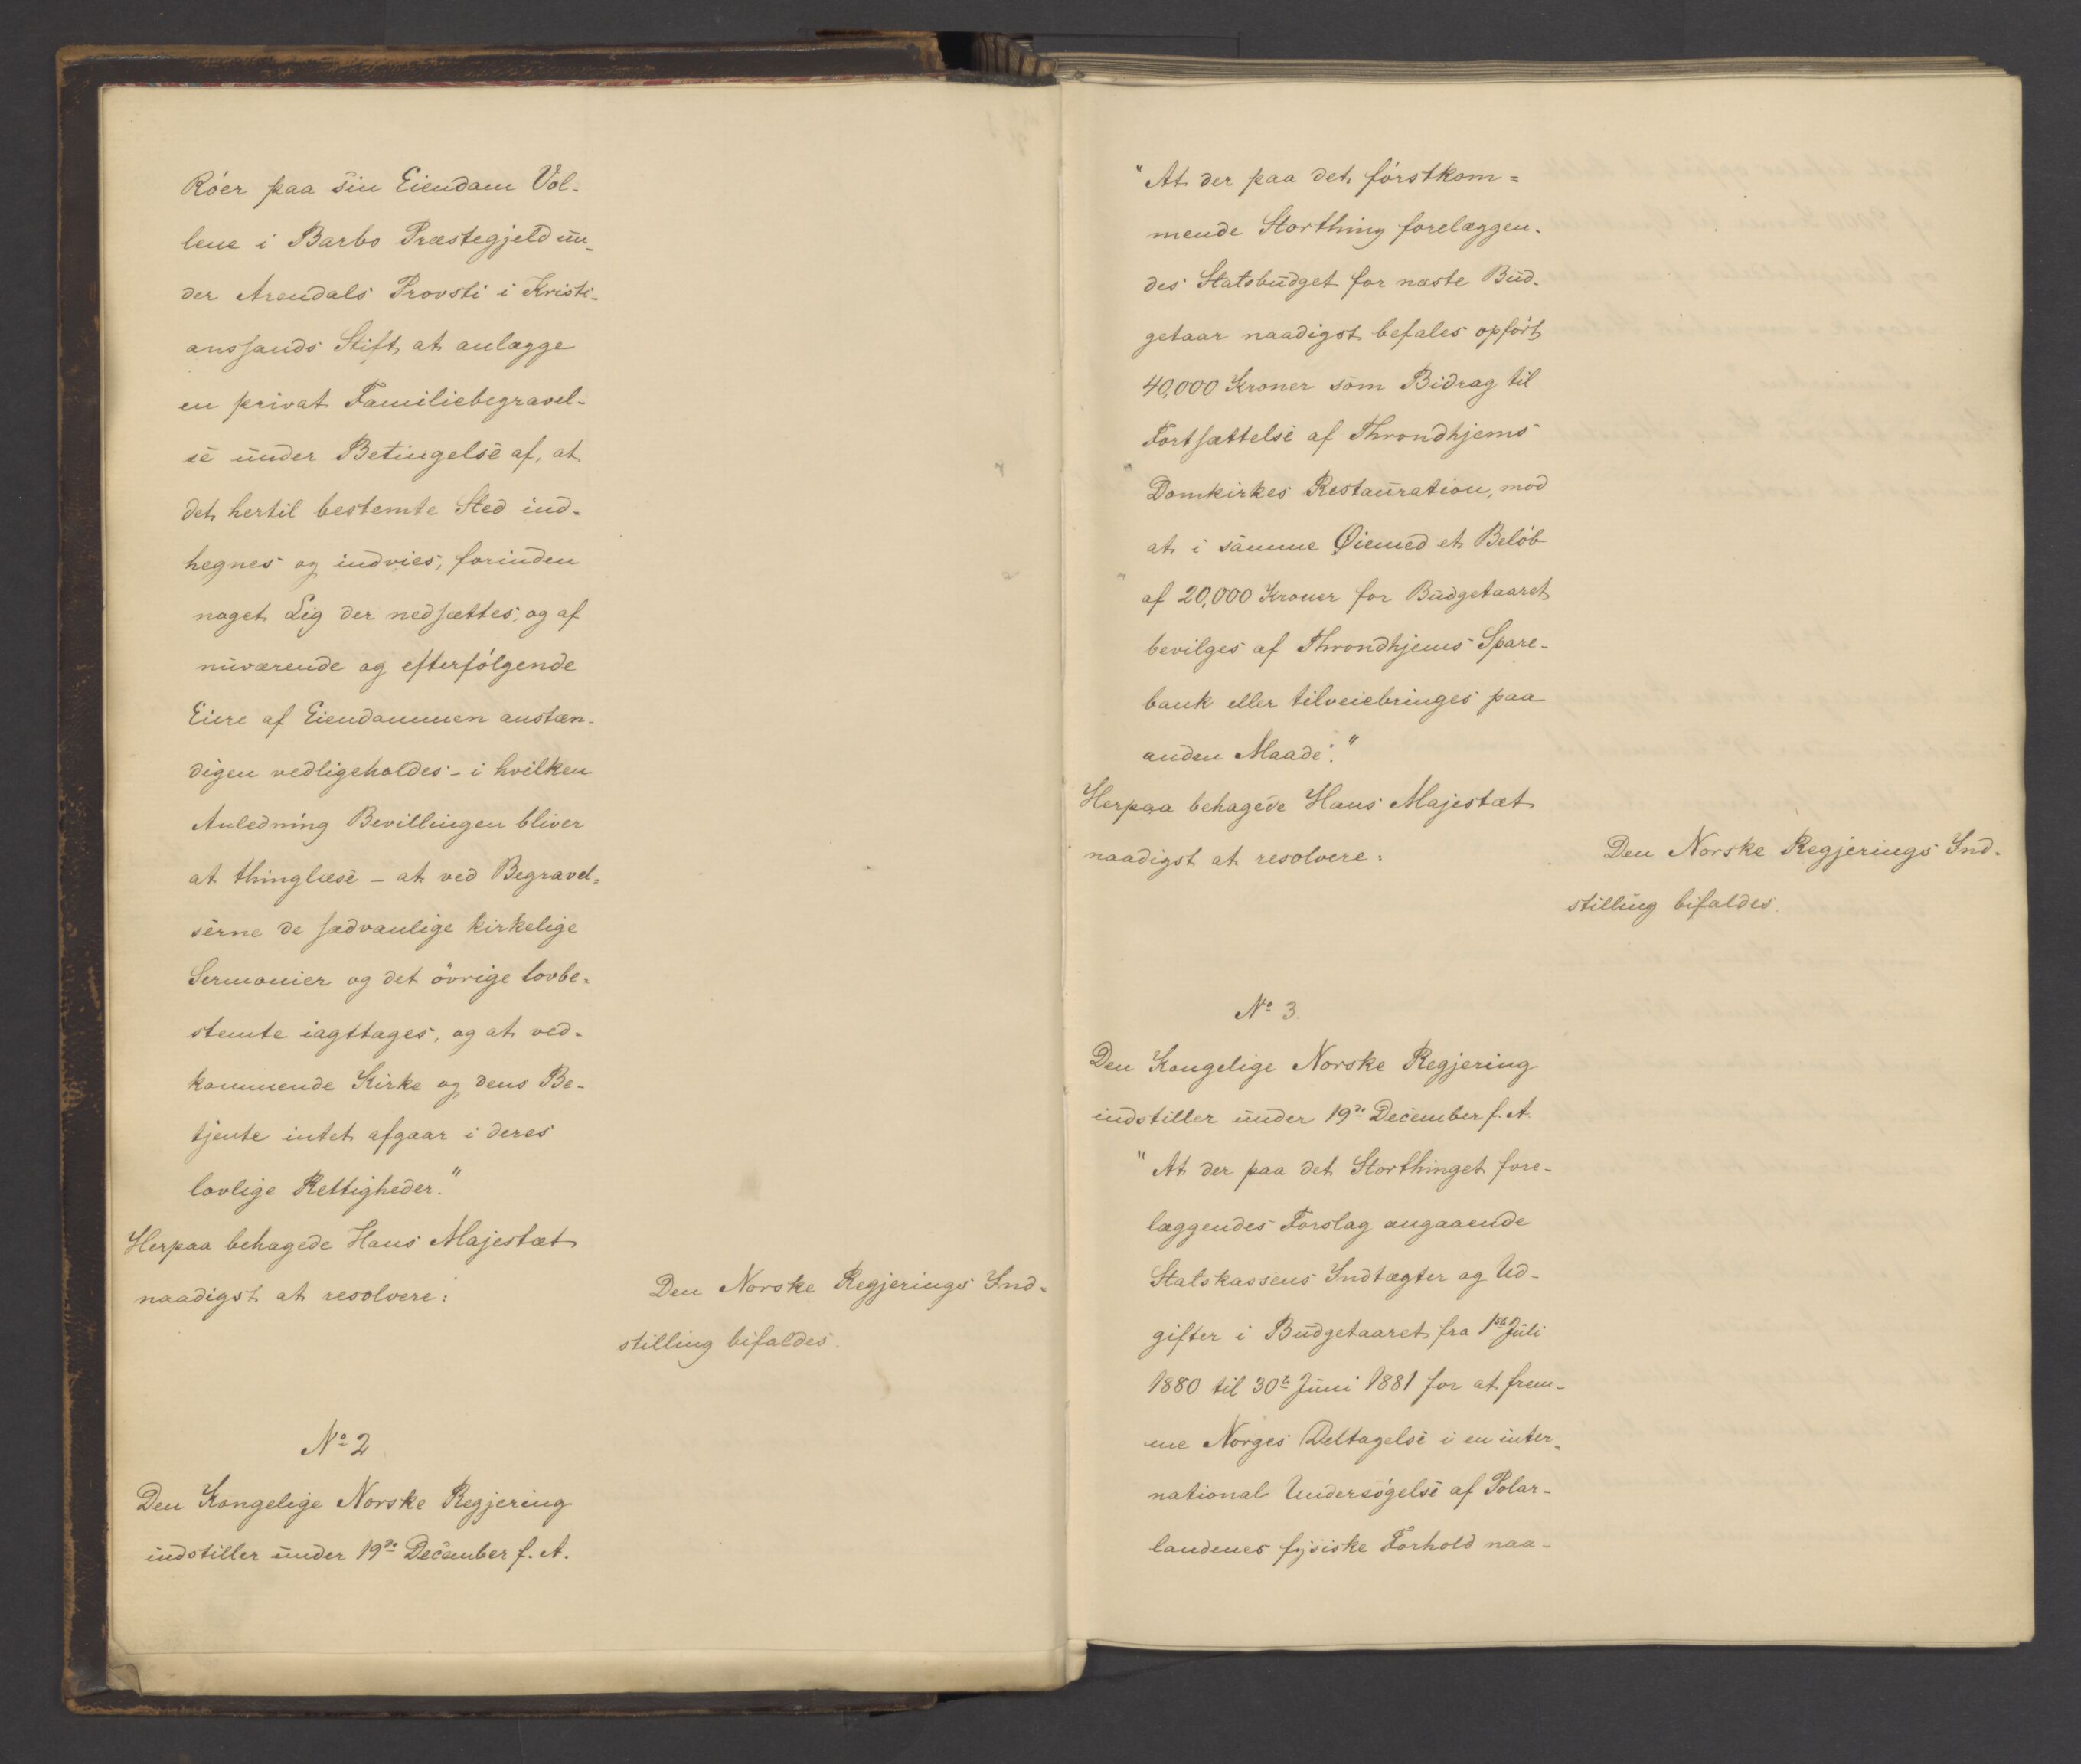 Róer paa sin Eiendom Vol-
lene i Barbo Præstegjeld un-
der Arendals Provsti i Kristi-
anssands Stift, at anlægge
en privat Familiebegravel-
se under Betingelse af, at
det hertil bestemte Sted ind-
hegnes og indvies, forinden
noget Lig der nedsættes, og af
nuværende og efterfólgende
Eiere af Eiendommen anstæn-
digen vedligeholdes - i hvilken
Anledning Bevillingen bliver
at thinglæse - at ved Begravel-
serne de sædvanlige kirkelige
Sermonier og det óvrige lovbe-
stemte iagttages, og at ved-
kommende Kirke og dens Be-
tjente intet afgaar i deres
lovlige Rettigheder."
Herpaa behagede Hans Majestæt
naadigst at resolvere:
Den Norske Regjerings Ind-
stilling bifaldes.
No 2
Den Kongelige Norske Regjering
indstiller under 19de December f. A.
"At der paa det fórstkom=
mende Storthing forelæggen-
des Statsbudget for næste Bud-
getaar naadigst befales opfórt
40,000 Kroner som Bidrag til
Fortsættelse af Throndhjems
Domkirkes Restauration, mod
at i samme Øiemed et Belób
af 20,000 Kroner for Budgetaaret
bevilges af Throndhjems Spare-
bank eller tilveiebringes paa
anden Maade."
Herpaa behagede Hans Majestæt
naadigst at resolvere:
Den Norske Regjerings Ind-
stilling bifaldes.
No 3.
Den Kongelige Norske Regjering
indstiller under 19de December f. A.
"At der paa det Storthinget fore-
læggendes Forslag angaaende
Statskassens Indtægter og Ud-
gifter i Budgetaaret fra 1ste Juli
1880 til 30te Juni 1881 for at frem-
me Norges Deltagelse i en inter-
national Undersógelse af Polar-
landenes fysiske Forhold naa-